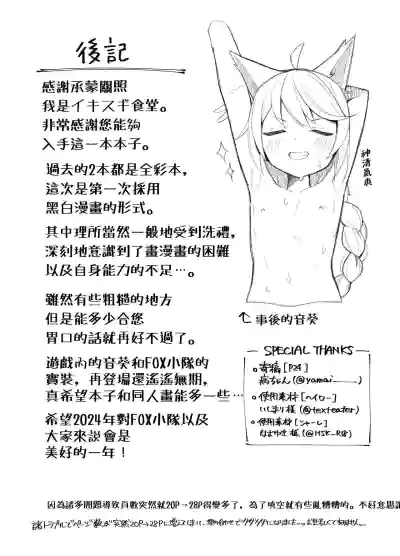 後記
感謝承蒙關照
我是イキスギ食堂。
非常感謝您能夠
入手這一本本子。
過去的2本都是全彩本，
這次是第一次採用
黑白漫畫的形式。
其中理所當然一般地受到洗禮，
深刻地意識到了畫漫畫的困難
以及自身能力的不足…。
雖然有些粗糙的地方
但是能多少合您
胃口的話就再好不過了。
遊戲內的音葵和FOX小隊的
實裝，再登場還遙遙無期，
真希望本子和同人畫能多一些…
希望2024年對FOX小隊以及
大家來說會是
美好的一年！
神清氣爽
↑事後的音葵
SPECIAL THANKS
。寄稿[P24]
病ちゃん(@yamai____)
。使用素材[ヘイロー]
いしまり様(@texteater)
。使用素材[シャーレ]
因為諸多問題導致頁數突然就20P→28P得變多了，為了填空就有些亂糟糟的。不好意思